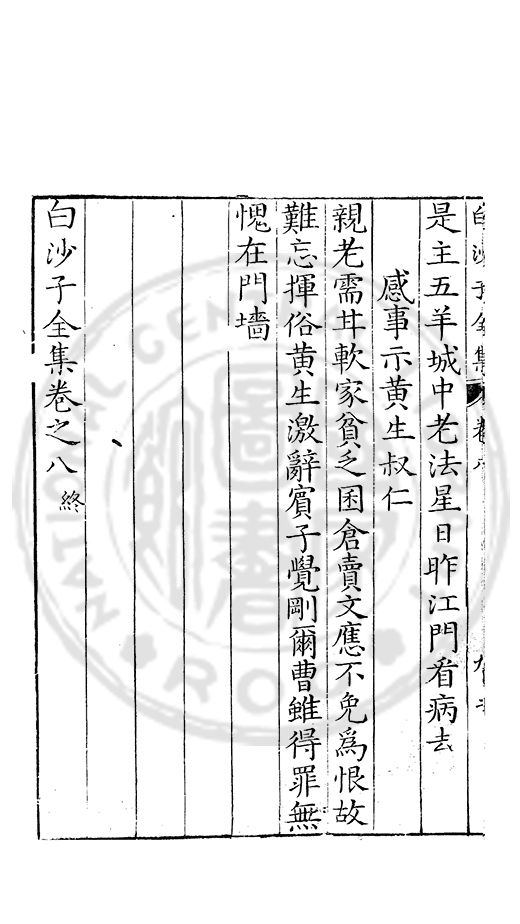 白沙子全集 卷
是主五羊城中老法星日昨江門看病去
感事示黄生叔仁
親老需甘軟家貧乏囷倉賣文應不免為恨故
難忘揮俗黄生激辭賓子覺剛爾曹雖得罪無
愧在門墻
白沙子全集卷之八 終